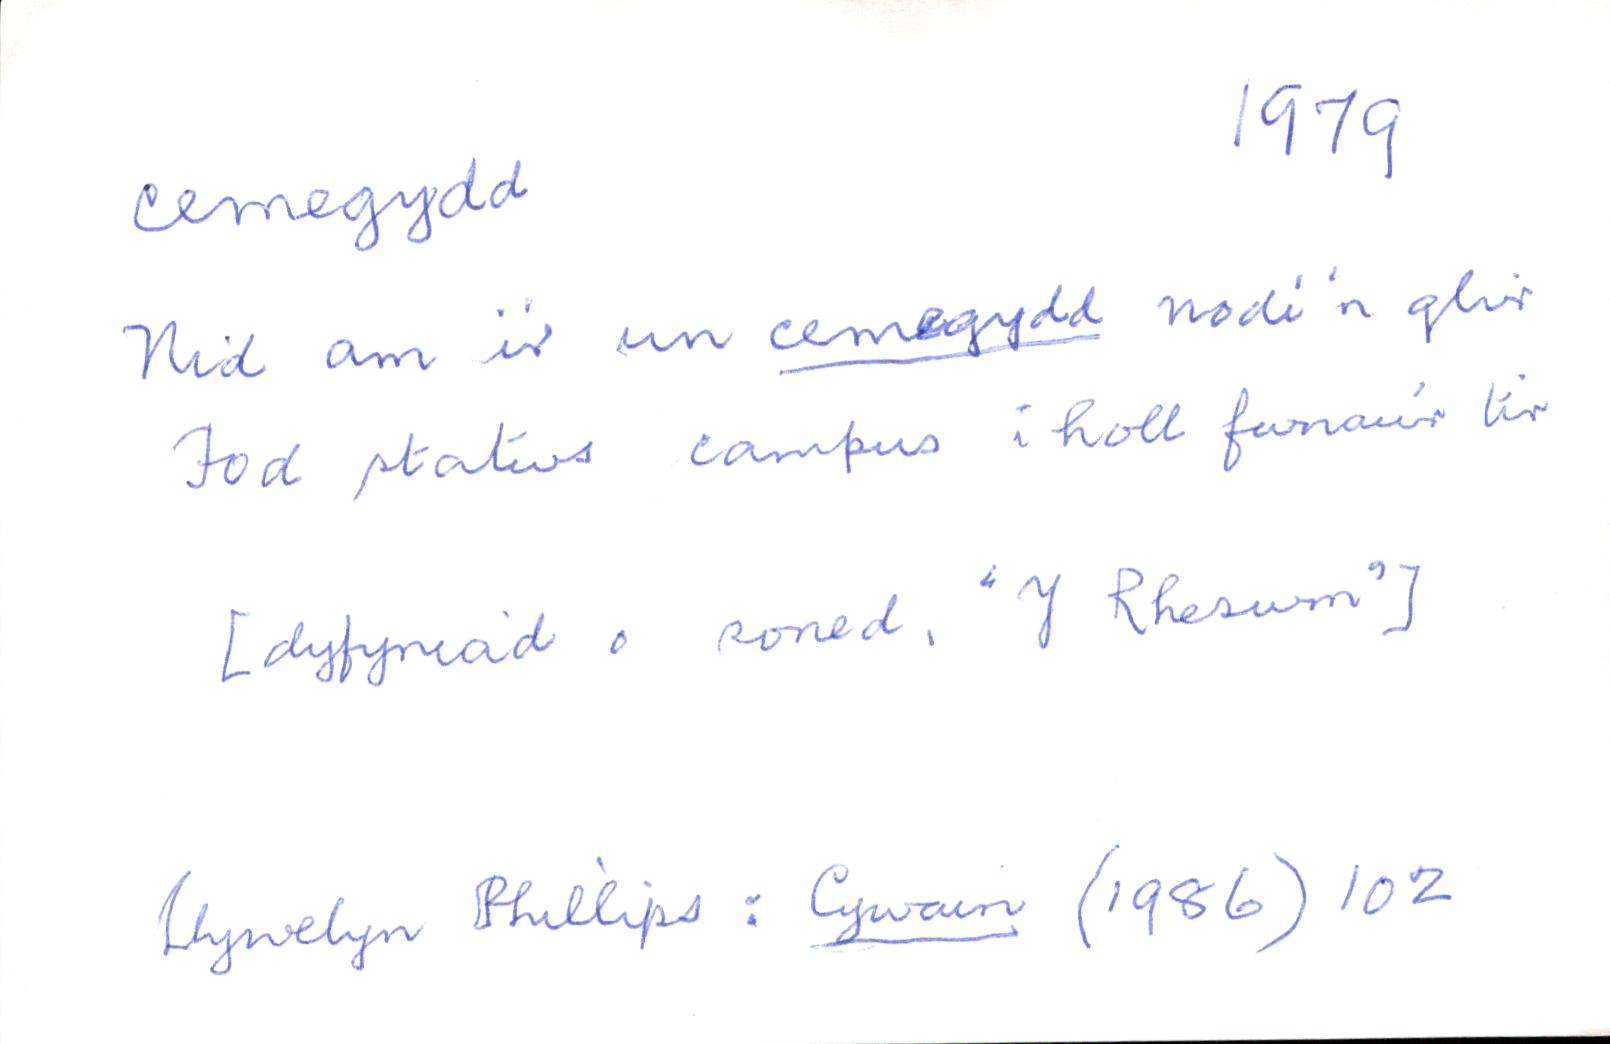 1979
cemegydd
Nid am i'r un cemegydd nodi'n glir
Fod statws campus i holl furnau'r tir
[dyfyniad o soned, "Y Rheswm"]
Llywelyn Phillips : Cywain (1986) 102